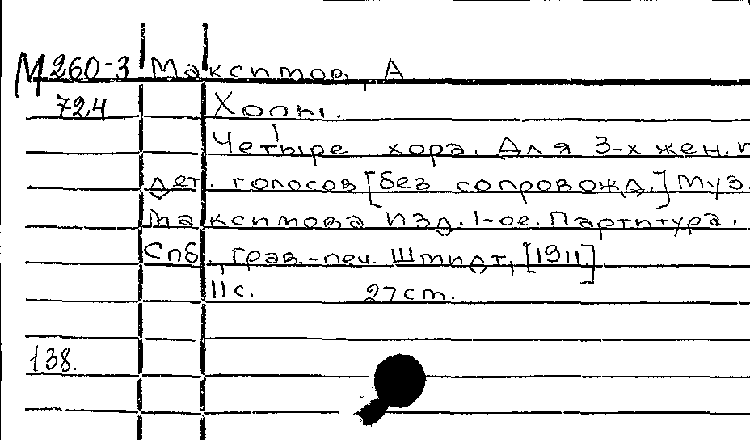 М260-3 Максимов, А
72.4 Хоры.
Четыре хора. Для 3-х жен. п
дет. голосов [без сопровожд.] Муз.
Максимова Изд. 1-ое. Партитура.
Спб., грав.-печ. Шмидт, [1911]
11 с. 27 cm.
138.